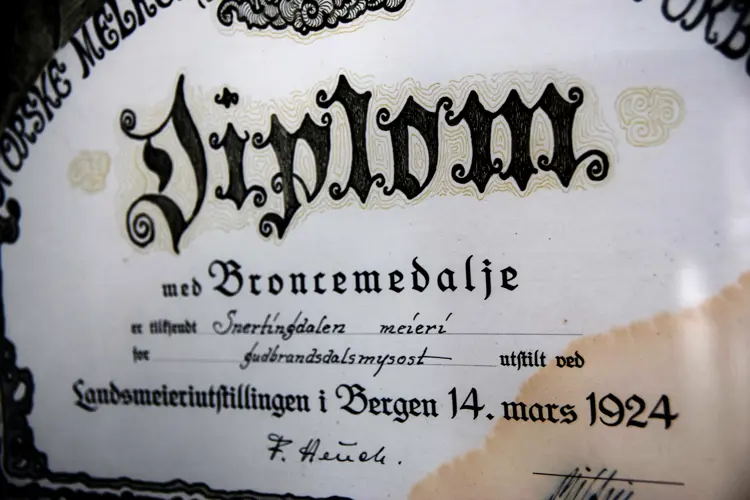 NORSKE
Diplom
med Broncemedalje
er tilkjendt Snertingdalen meieri
for gudbrandsdalsmysost utstilt ved
Landsmeieriutstillingen i Bergen 14. mars 1924
F. Heuch.